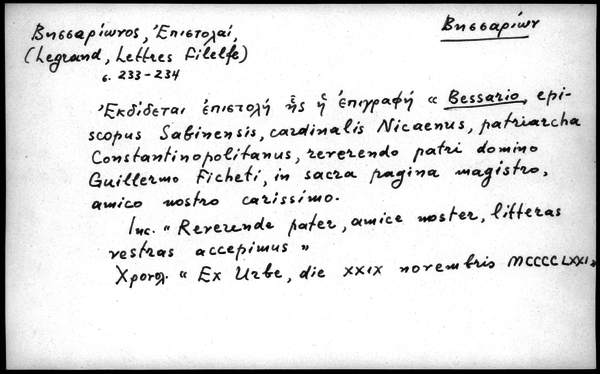 Βησσαρίων
Βησσαρίωνος, Ἐπιστολαί,
(Legrand, Lettres Filelfe)
σ. 233-234
Ἐκδίδεται ἐπιστολή ἧς ἡ ἐπιγραφή « Bessario, epi-
scopus Sabinensis, cardinalis Nicaenus, patriarcha
Constantinopolitanus, reverendo patri domino
Guillermo Ficheti, in sacra pagina magistro,
amico nostro carissimo.
Inc. « Reverende pater, amice noster, litteras
vestras accepimus »
Χρονολ. « Ex Urbe, die XXIX novembris MCCCCLXXI »